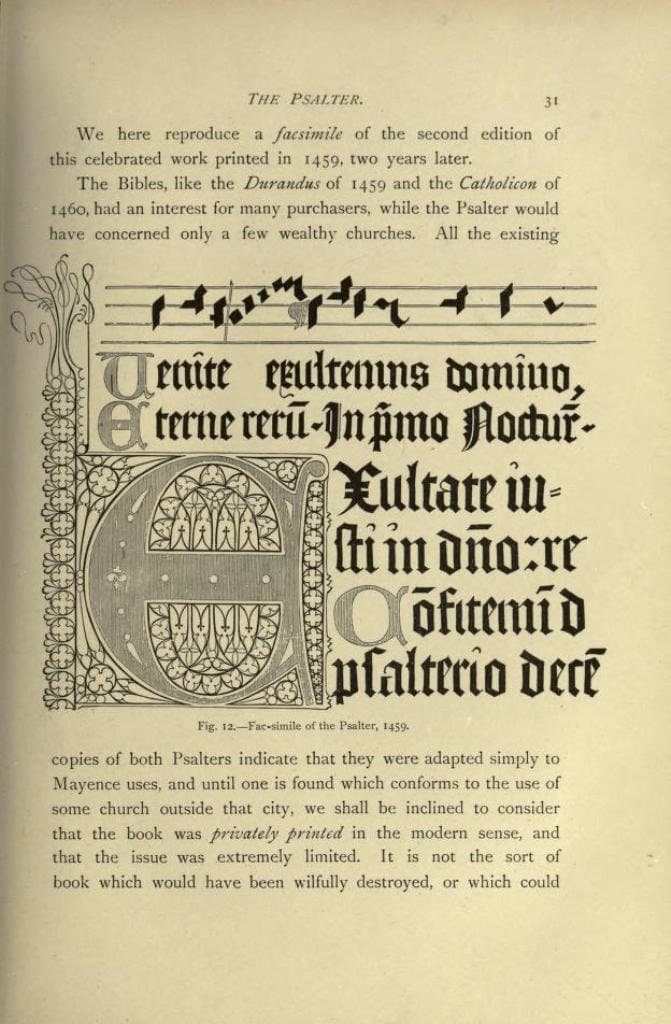 THE PSALTER. 31
We here reproduce a facsimile of the second edition of
this celebrated work printed in 1459, two years later.
The Bibles, like the Durandus of 1459 and the Catholicon of
1460, had an interest for many purchasers, while the Psalter would
have concerned only a few wealthy churches. All the existing
Venite exultemus domino,
Eterne rerū. In p̄mo Noctur̄.
EXultate iu=
sti in dño: re
Cōfitemī d
psalterio decē
Fig. 12.—Fac-simile of the Psalter, 1459.
copies of both Psalters indicate that they were adapted simply to
Mayence uses, and until one is found which conforms to the use of
some church outside that city, we shall be inclined to consider
that the book was privately printed in the modern sense, and
that the issue was extremely limited. It is not the sort of
book which would have been wilfully destroyed, or which could